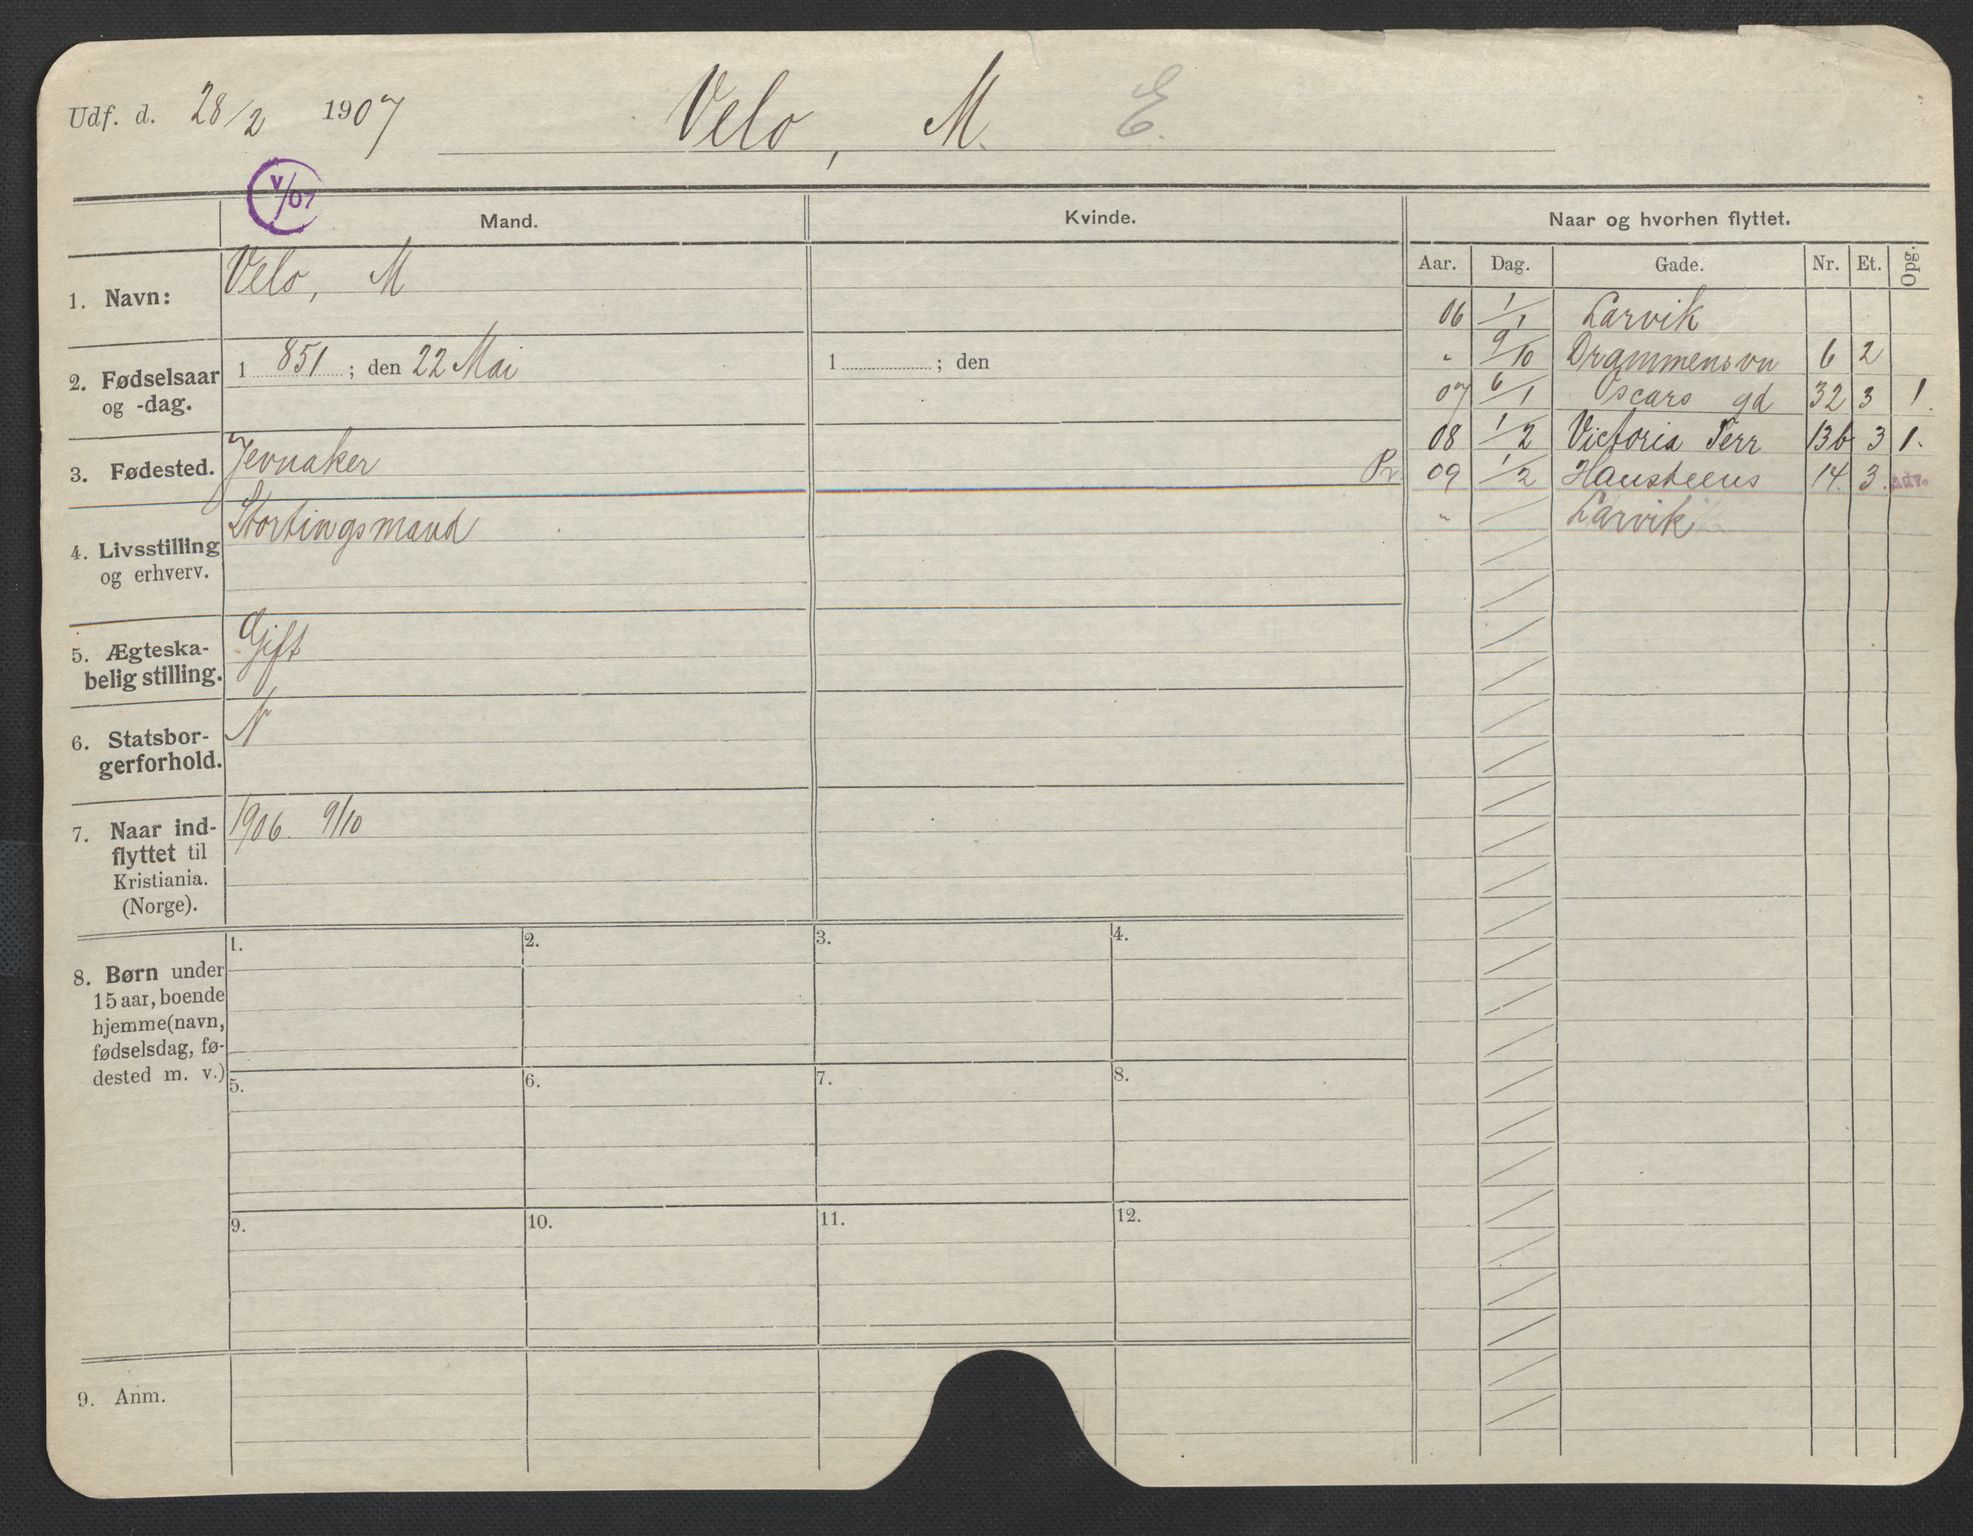 Udf. d. 28/2 1907 Velo, M. E.
V/07
Mand. Kvinde. Naar og hvorhen flyttet.
Aar. Dag. Gade. Nr. Et. Opg.
1. Navn: Velo, M
2. Fødselsaar og -dag. 1851; den 22 Mai
1 ; den
3. Fødested. Jevnaker
4. Livsstilling og erhverv. Stortingsmand
5. Ægteska-
belig stilling. Gift
6. Statsbor-
gerforhold. N
7. Naar ind-
flyttet til
Kristiania.
(Norge). 1906 9/10
06 1/1 Larvik
" 9/10 Drammensvn 6 2
07 6/1 Oscars gd 32 3 1.
08 1/2 Victoria Terr 13b 3 1.
Pr. 09 1/2 Hansteens 14. 3. Adv.
" / Larvik
8. Børn under
15 aar, boende
hjemme (navn,
fødselsdag, fø-
dested m. v.)
1. 2. 3. 4.
5. 6. 7. 8.
9. 10. 11. 12.
9. Anm.